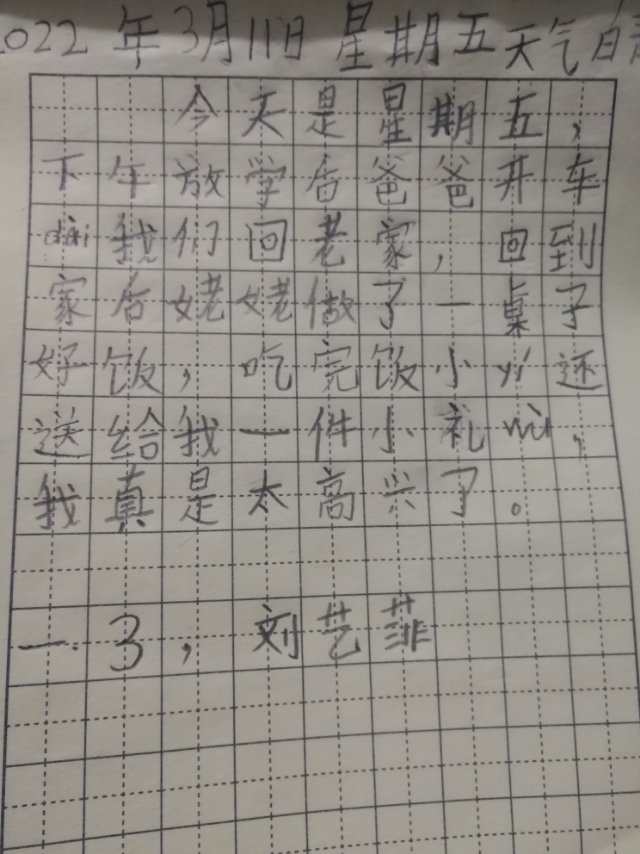 2022年3月11日 星期五 天气晴
今天是星期五，
下午放学后爸爸开车
dài我们回老家，回到
家后姥姥做了一桌子
好饭，吃完饭小yí还
送给我一件小礼wù，
我真是太高兴了。
一.3，刘艺菲